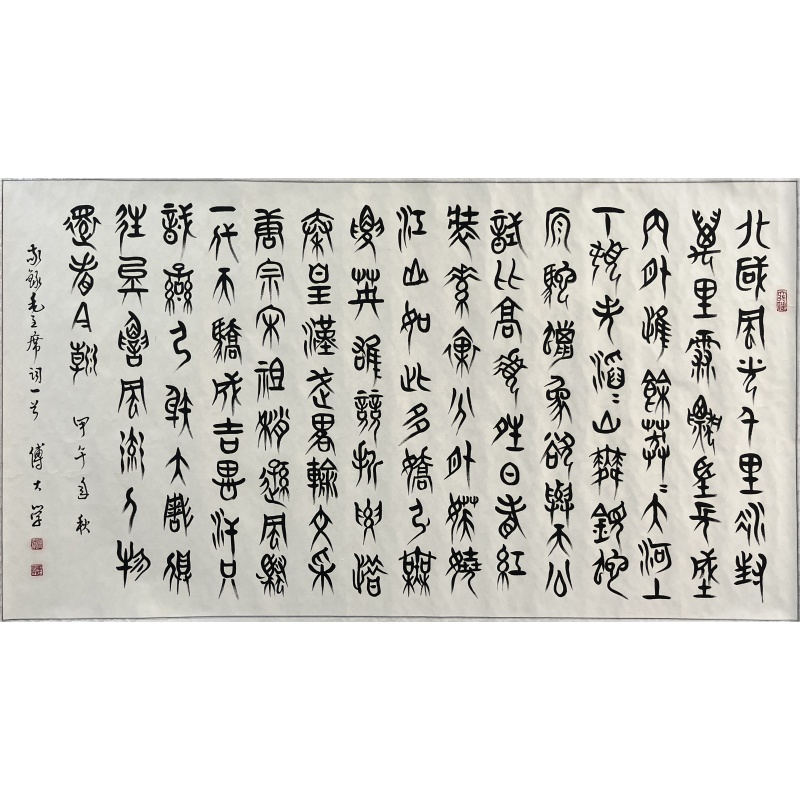 北國風光千里冰封
萬里雪飄望長城
內外惟餘莽〻大河上
下頓失滔〻山舞銀蛇
原馳蠟象欲與天公
試比高須晴日看紅
裝素裹分外妖嬈
江山如此多嬌引無
數英雄競折腰惜
秦皇漢武略輸文采
唐宗宋祖稍遜風騷
一代天驕成吉思汗只
識彎弓射大雕俱
往矣數風流人物
還看今朝 甲午年秋
敬錄毛主席詞一首 傅大学